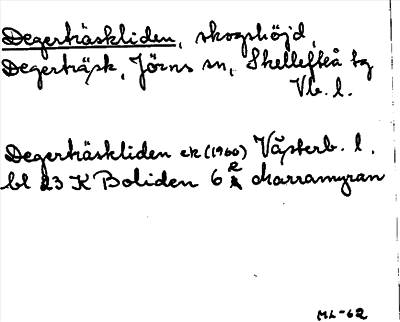 Degerträskliden, skogshöjd,
Degerträsk, Jörns sn, Skellefteå tg
Vb. l.
Degerträskliden ek (1960) Västerb. l.
bl 23 K Boliden 6 e Marramyran
ML-62